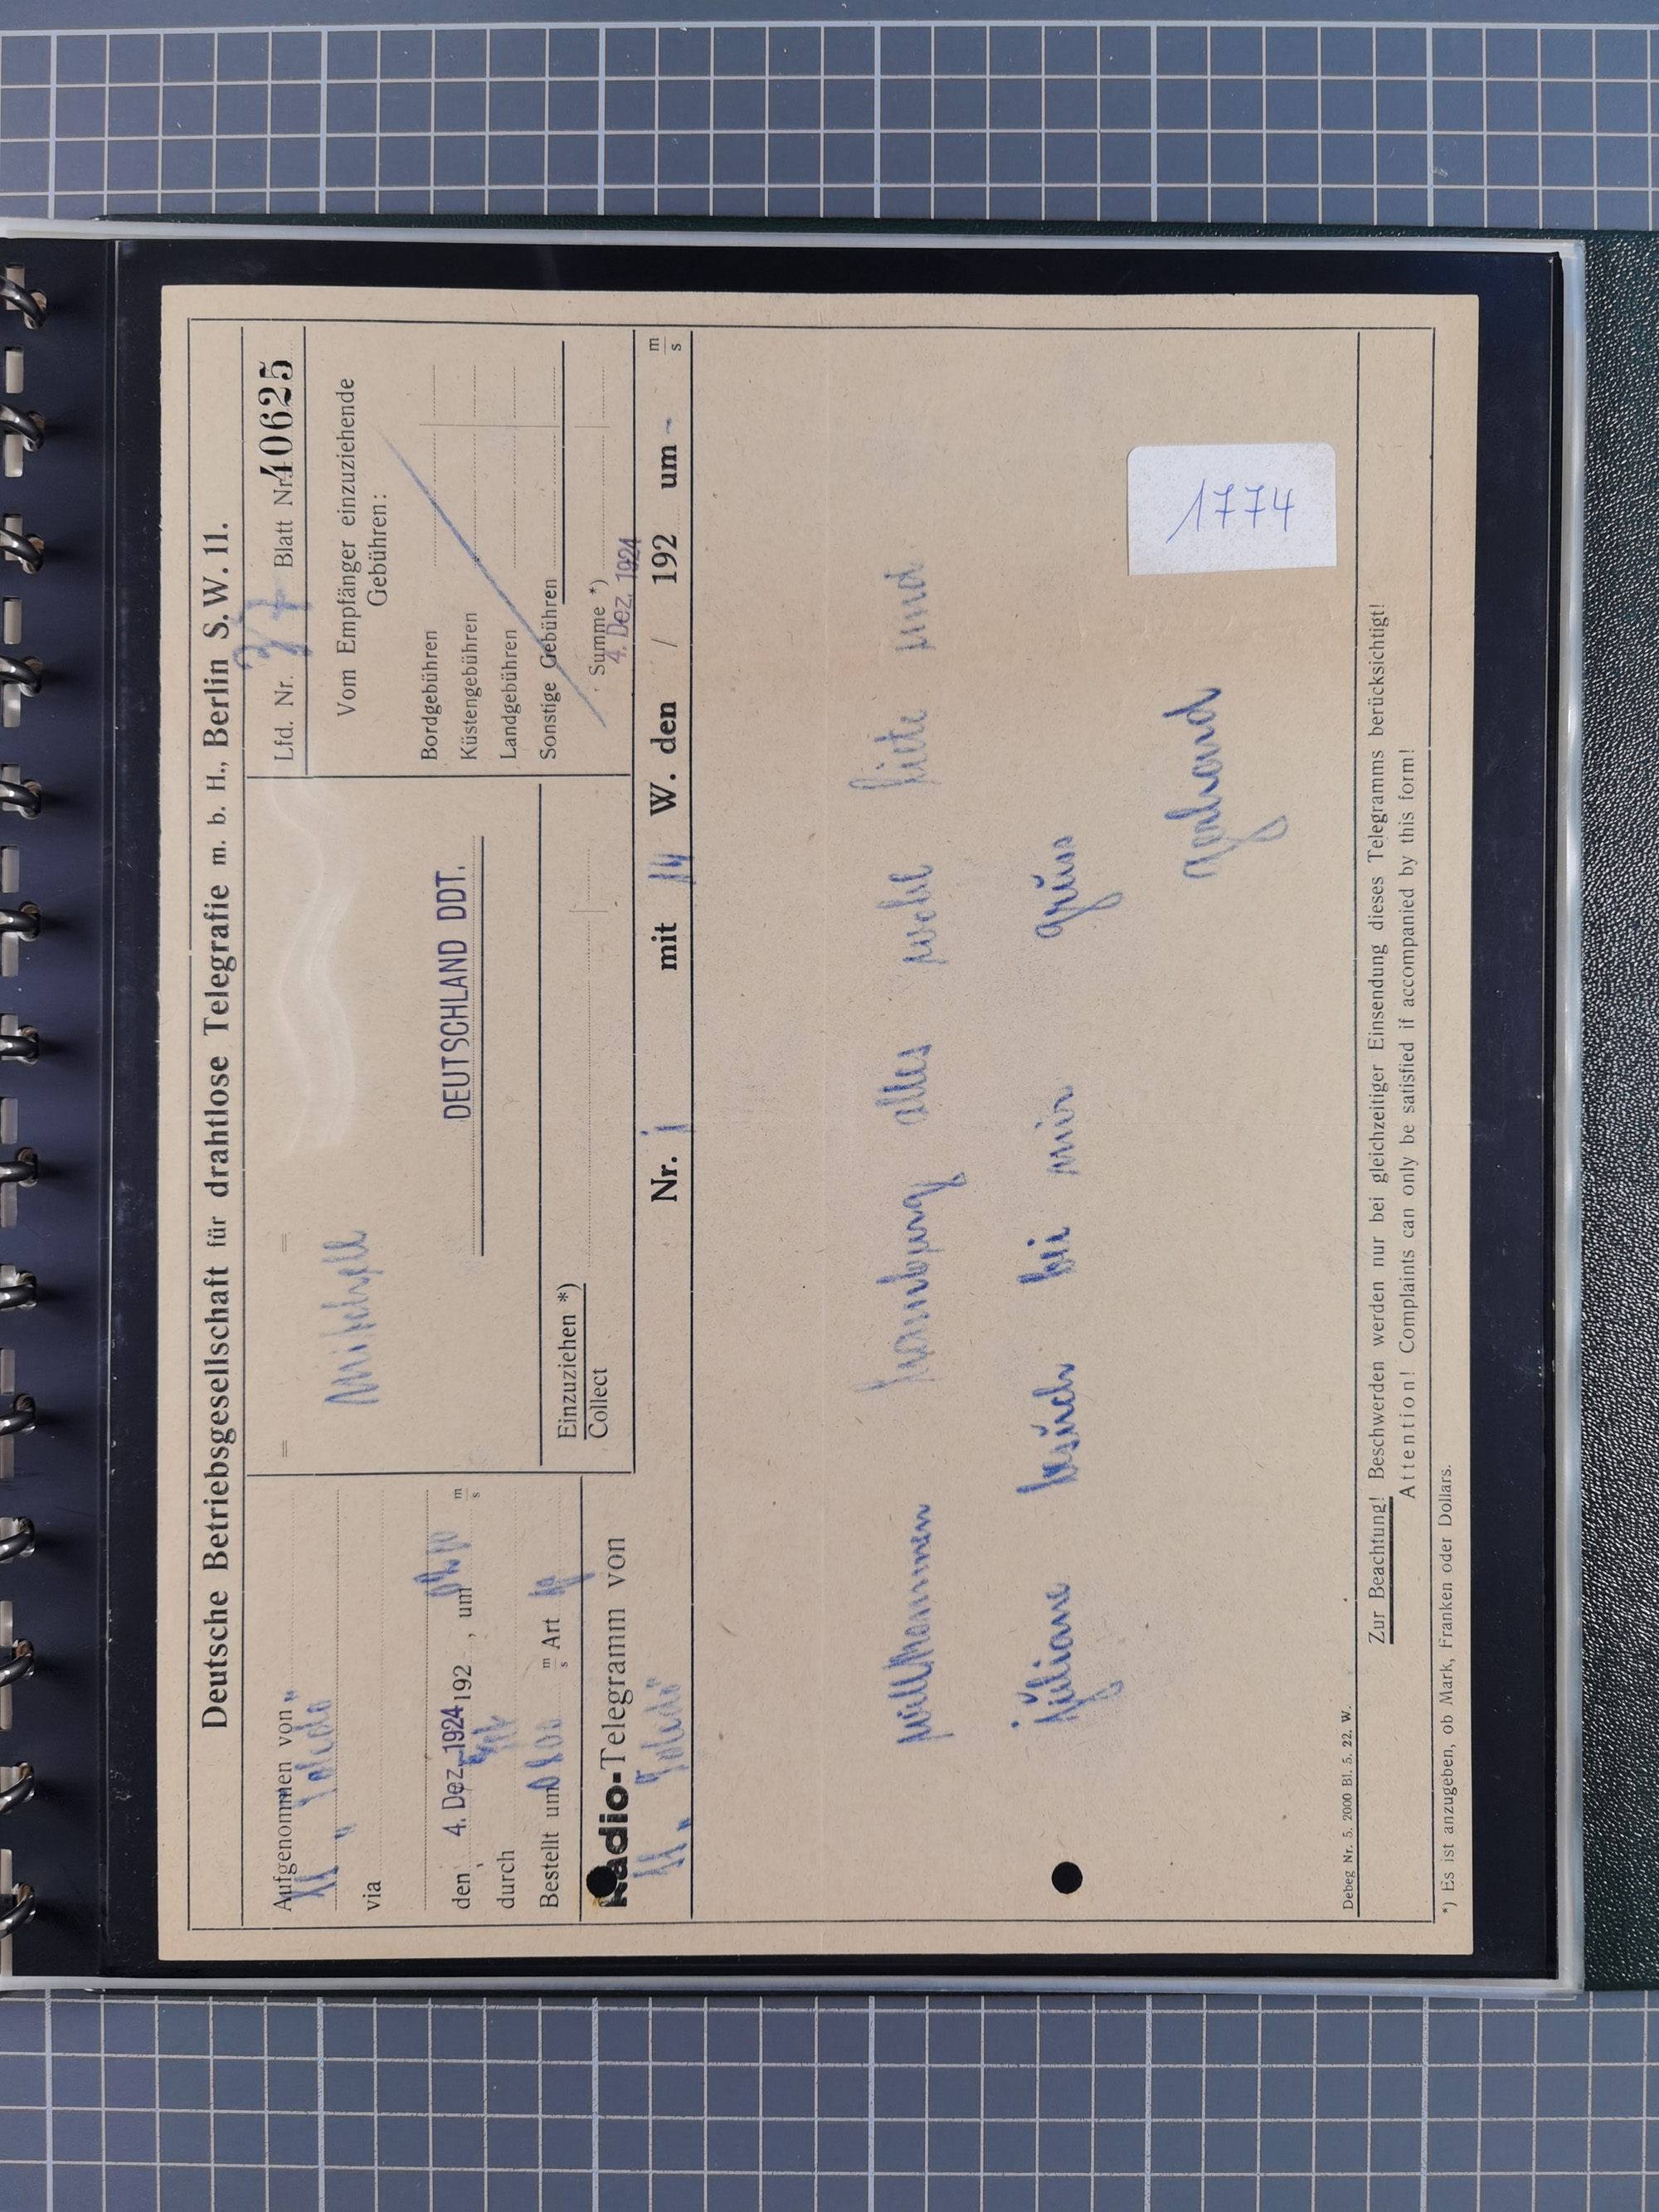 Deutsche Betriebsgesellschaft für drahtlose Telegrafie m. b. H., Berlin S. W. 11.
Aufgenommen von "
"Toledo"
via
den 4. Dez. 1924 192 , um m/s
durch
Bestellt um m/s Art
= =
DEUTSCHLAND DDT.
Einzuziehen *)
Collect
Lfd. Nr. 3/7 Blatt Nr. 40625
Vom Empfänger einzuziehende
Gebühren:
Bordgebühren
Küstengebühren
Landgebühren
Sonstige Gebühren
Summe *)
4. Dez. 1924
Radio-Telegramm von Nr. 1 mit 14 W. den / 192 um - m/s
"Toledo"
willkommen hamburg alles wohl hiete und
juliane besuch bei mir grüss
gerhard
1774
Debeg Nr. 5. 2000 Bl. 5. 22. W.
Zur Beachtung! Beschwerden werden nur bei gleichzeitiger Einsendung dieses Telegramms berücksichtigt!
Attention! Complaints can only be satisfied if accompanied by this form!
*) Es ist anzugeben, ob Mark, Franken oder Dollars.